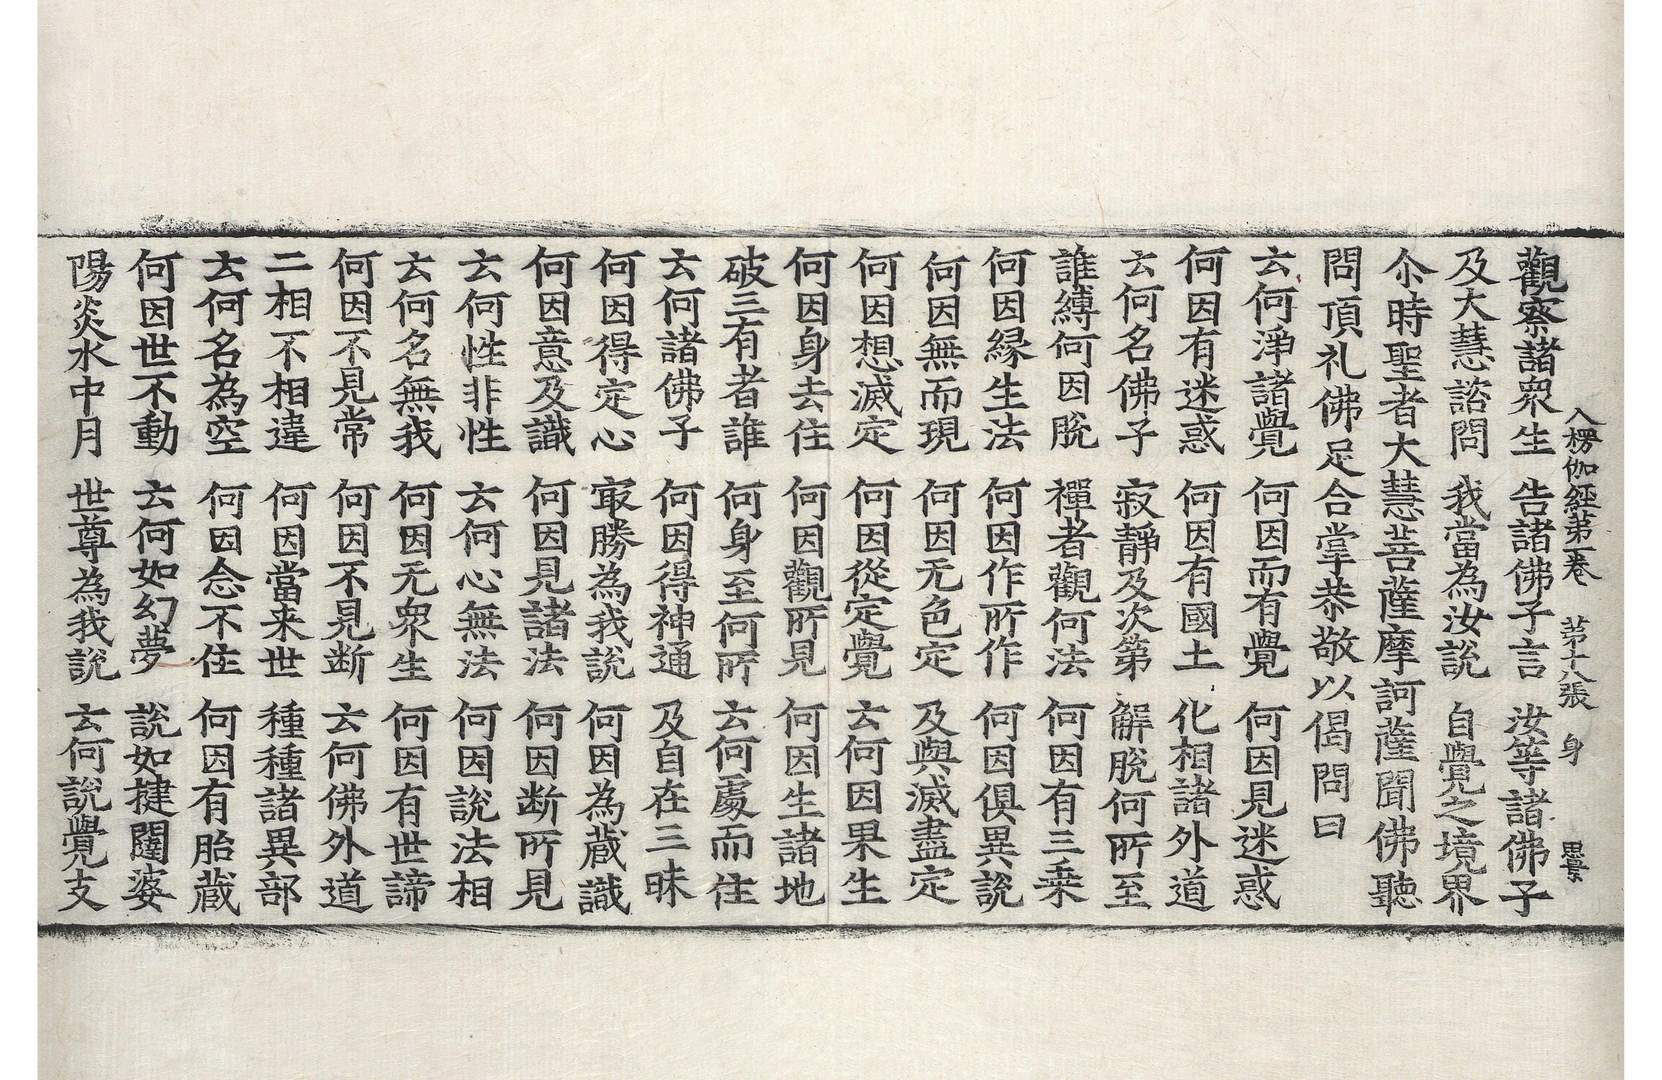 入楞伽經第一卷 第十八張 身
觀察諸衆生 告諸佛子言 汝等諸佛子
及大慧諮問 我當為汝說 自覺之境界
尒時聖者大慧菩薩摩訶薩聞佛聽
問頂礼佛足合掌恭敬以偈問曰
云何淨諸覺 何因而有覺 何因見迷惑
何因有迷惑 何因有國土 化相諸外道
云何名佛子 寂靜及次第 解脫何所至
誰縛何因脫 禪者觀何法 何因有三乘
何因緣生法 何因作所作 何因俱異說
何因無而現 何因无色定 及與滅盡定
何因想滅定 何因從定覺 云何因果生
何因身去住 何因觀所見 何因生諸地
破三有者誰 何身至何所 云何處而住
云何諸佛子 何因得神通 及自在三昧
何因得定心 㝡勝為我說 何因為藏識
何因意及識 何因見諸法 何因断所見
云何性非性 云何心無法 何因說法相
云何名無我 何因无衆生 何因有世諦
何因不見常 何因不見断 云何佛外道
二相不相違 何因當来世 種種諸異部
云何名為空 何因念不住 何因有胎藏
何因世不動 云何如幻夢 說如揵闥婆
陽炎水中月 世尊為我說 云何說覺支